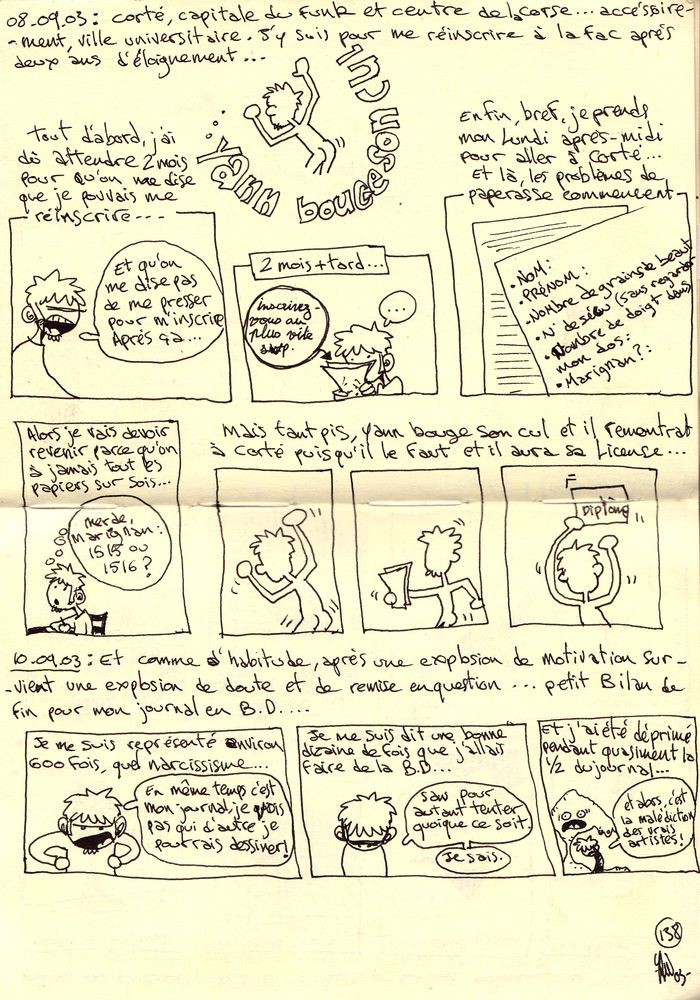 08.09.03 : corté, capitale du Funk et centre de la corse... accéssoire-
-ment, ville universitaire. J'y suis pour me réinscrire à la fac après
deux ans d'éloignement...
Yann bouge son cul
Tout d'abord, j'ai
dû attendre 2 mois
pour qu'on me dise
que je pouvais me
réinscrire...
Et qu'on
me dise pas
de me presser
pour m'inscrire
Après ça...
2 mois + tard...
inscrivez
vous au
plus vite
...
Enfin, bref, je prends
mon Lundi après-midi
pour aller à Corté...
Et là, les problèmes de
paperasse commencent
• Nom:
• PRÉNOM:
• Nombre de grains de beauté
• N° de sécu (sans regarder
• Nombre de doigt dans
mon dos:
• Marignan?:
Alors je vais devoir
revenir parce qu'on
à jamais tout les
papiers sur sois...
merde,
Marignan:
1515 ou
1516?
Mais tant pis, Yann bouge son cul et il remontrat
à Corté puisqu'il le faut et il aura sa License...
F
Diplôme
10.09.03 : Et comme d'habitude, après une explosion de motivation sur-
-vient une explosion de doute et de remise en question... petit Bilan de
fin pour mon journal en B.D....
Je me suis représenté environ
600 fois, quel narcissisme...
En même temps c'est
mon journal, je vois
pas qui d'autre je
pourrais dessiner!
Je me suis dit une bonne
dizaine de fois que j'allait
faire de la B.D...
Saw pour
autant tenter
quoique ce soit.
Je sais.
Et j'ai été déprimé
pendant quasiment la
1/2 du journal...
et alors, c'est
la malédiction
des vrais
artistes!
138
03-